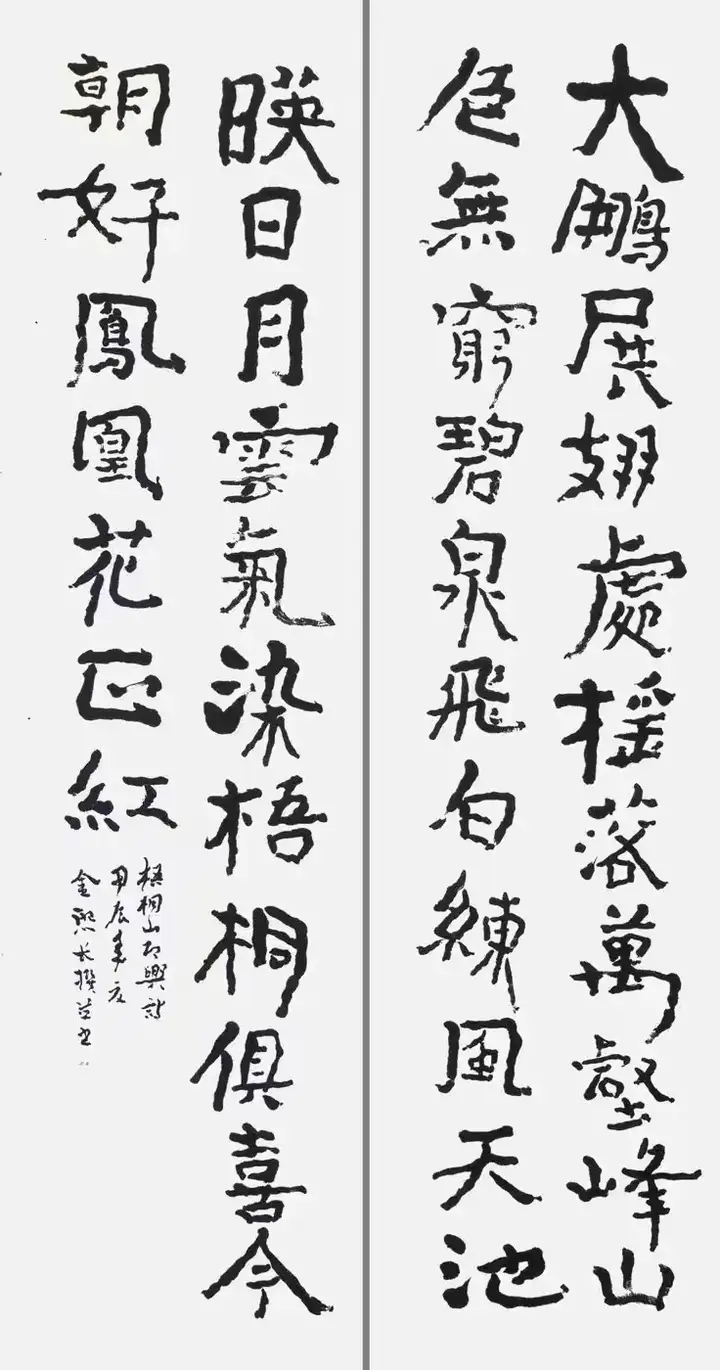 大鵬展翅處搖落萬壑峰山
色無窮碧泉飛白練風天池
暎日月雲氣染梧桐俱喜今
朝好鳳凰花正紅
梧桐山即興詩
甲辰年夏
金熙长撰並书